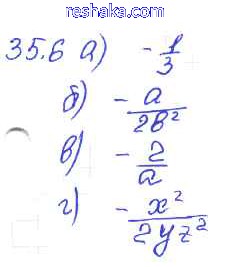 reshaka.com
35.6 а) -1/3
б) -a/2b²
в) -2/a
г) -x²/2yz²